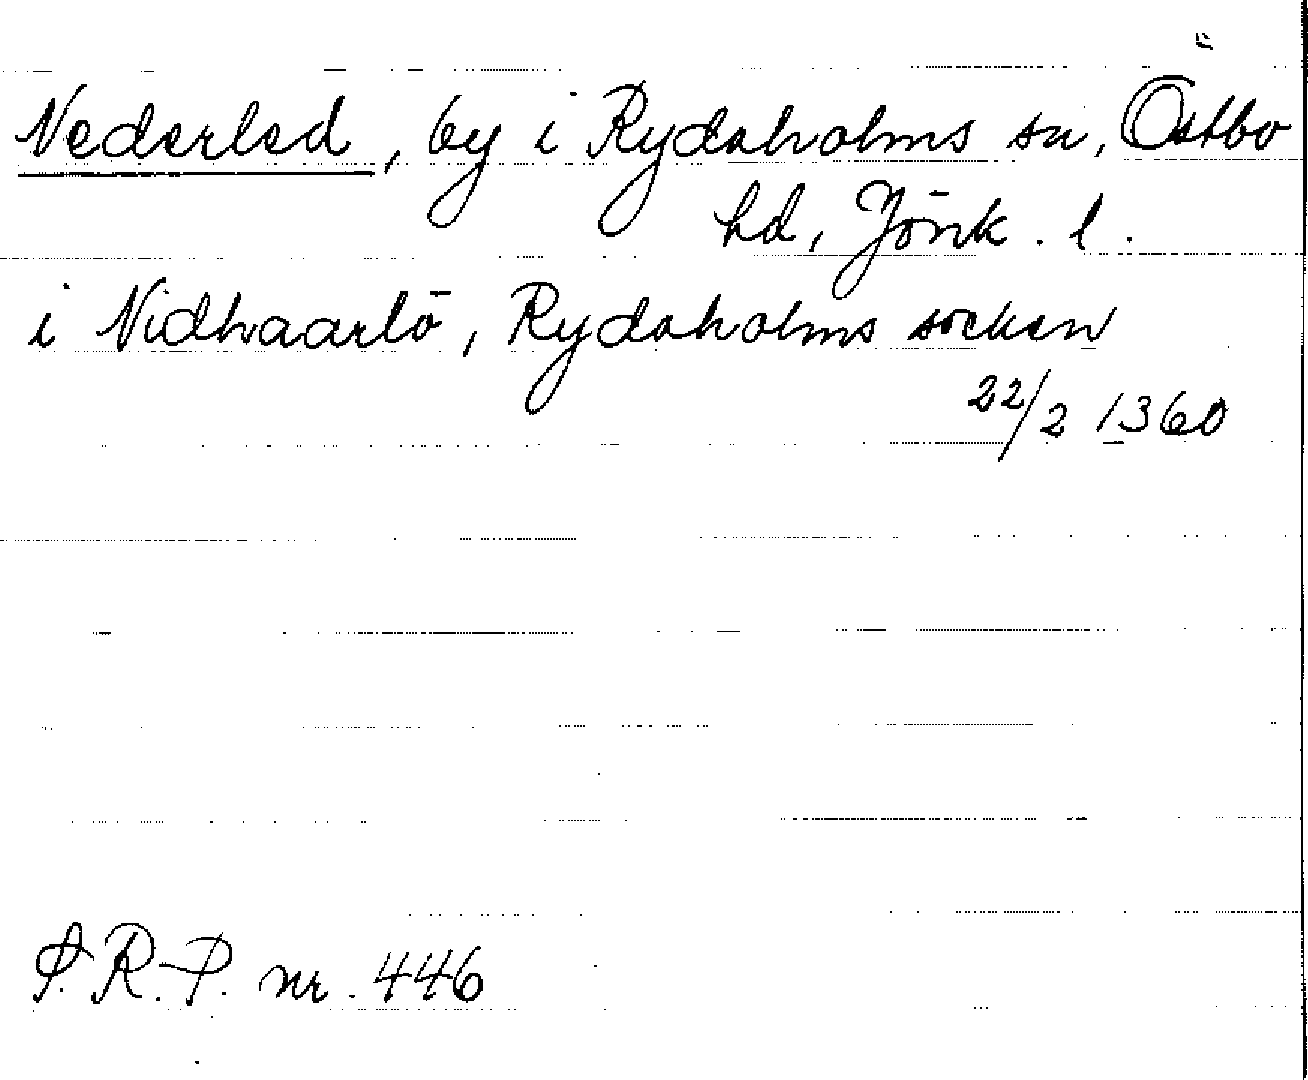 Nederled, by i Rydaholms sn, Östbo
hd, Jönk. l.
i Nidhaarlö, Rydaholms socken
22/2 1360
S.R.P. nr. 446